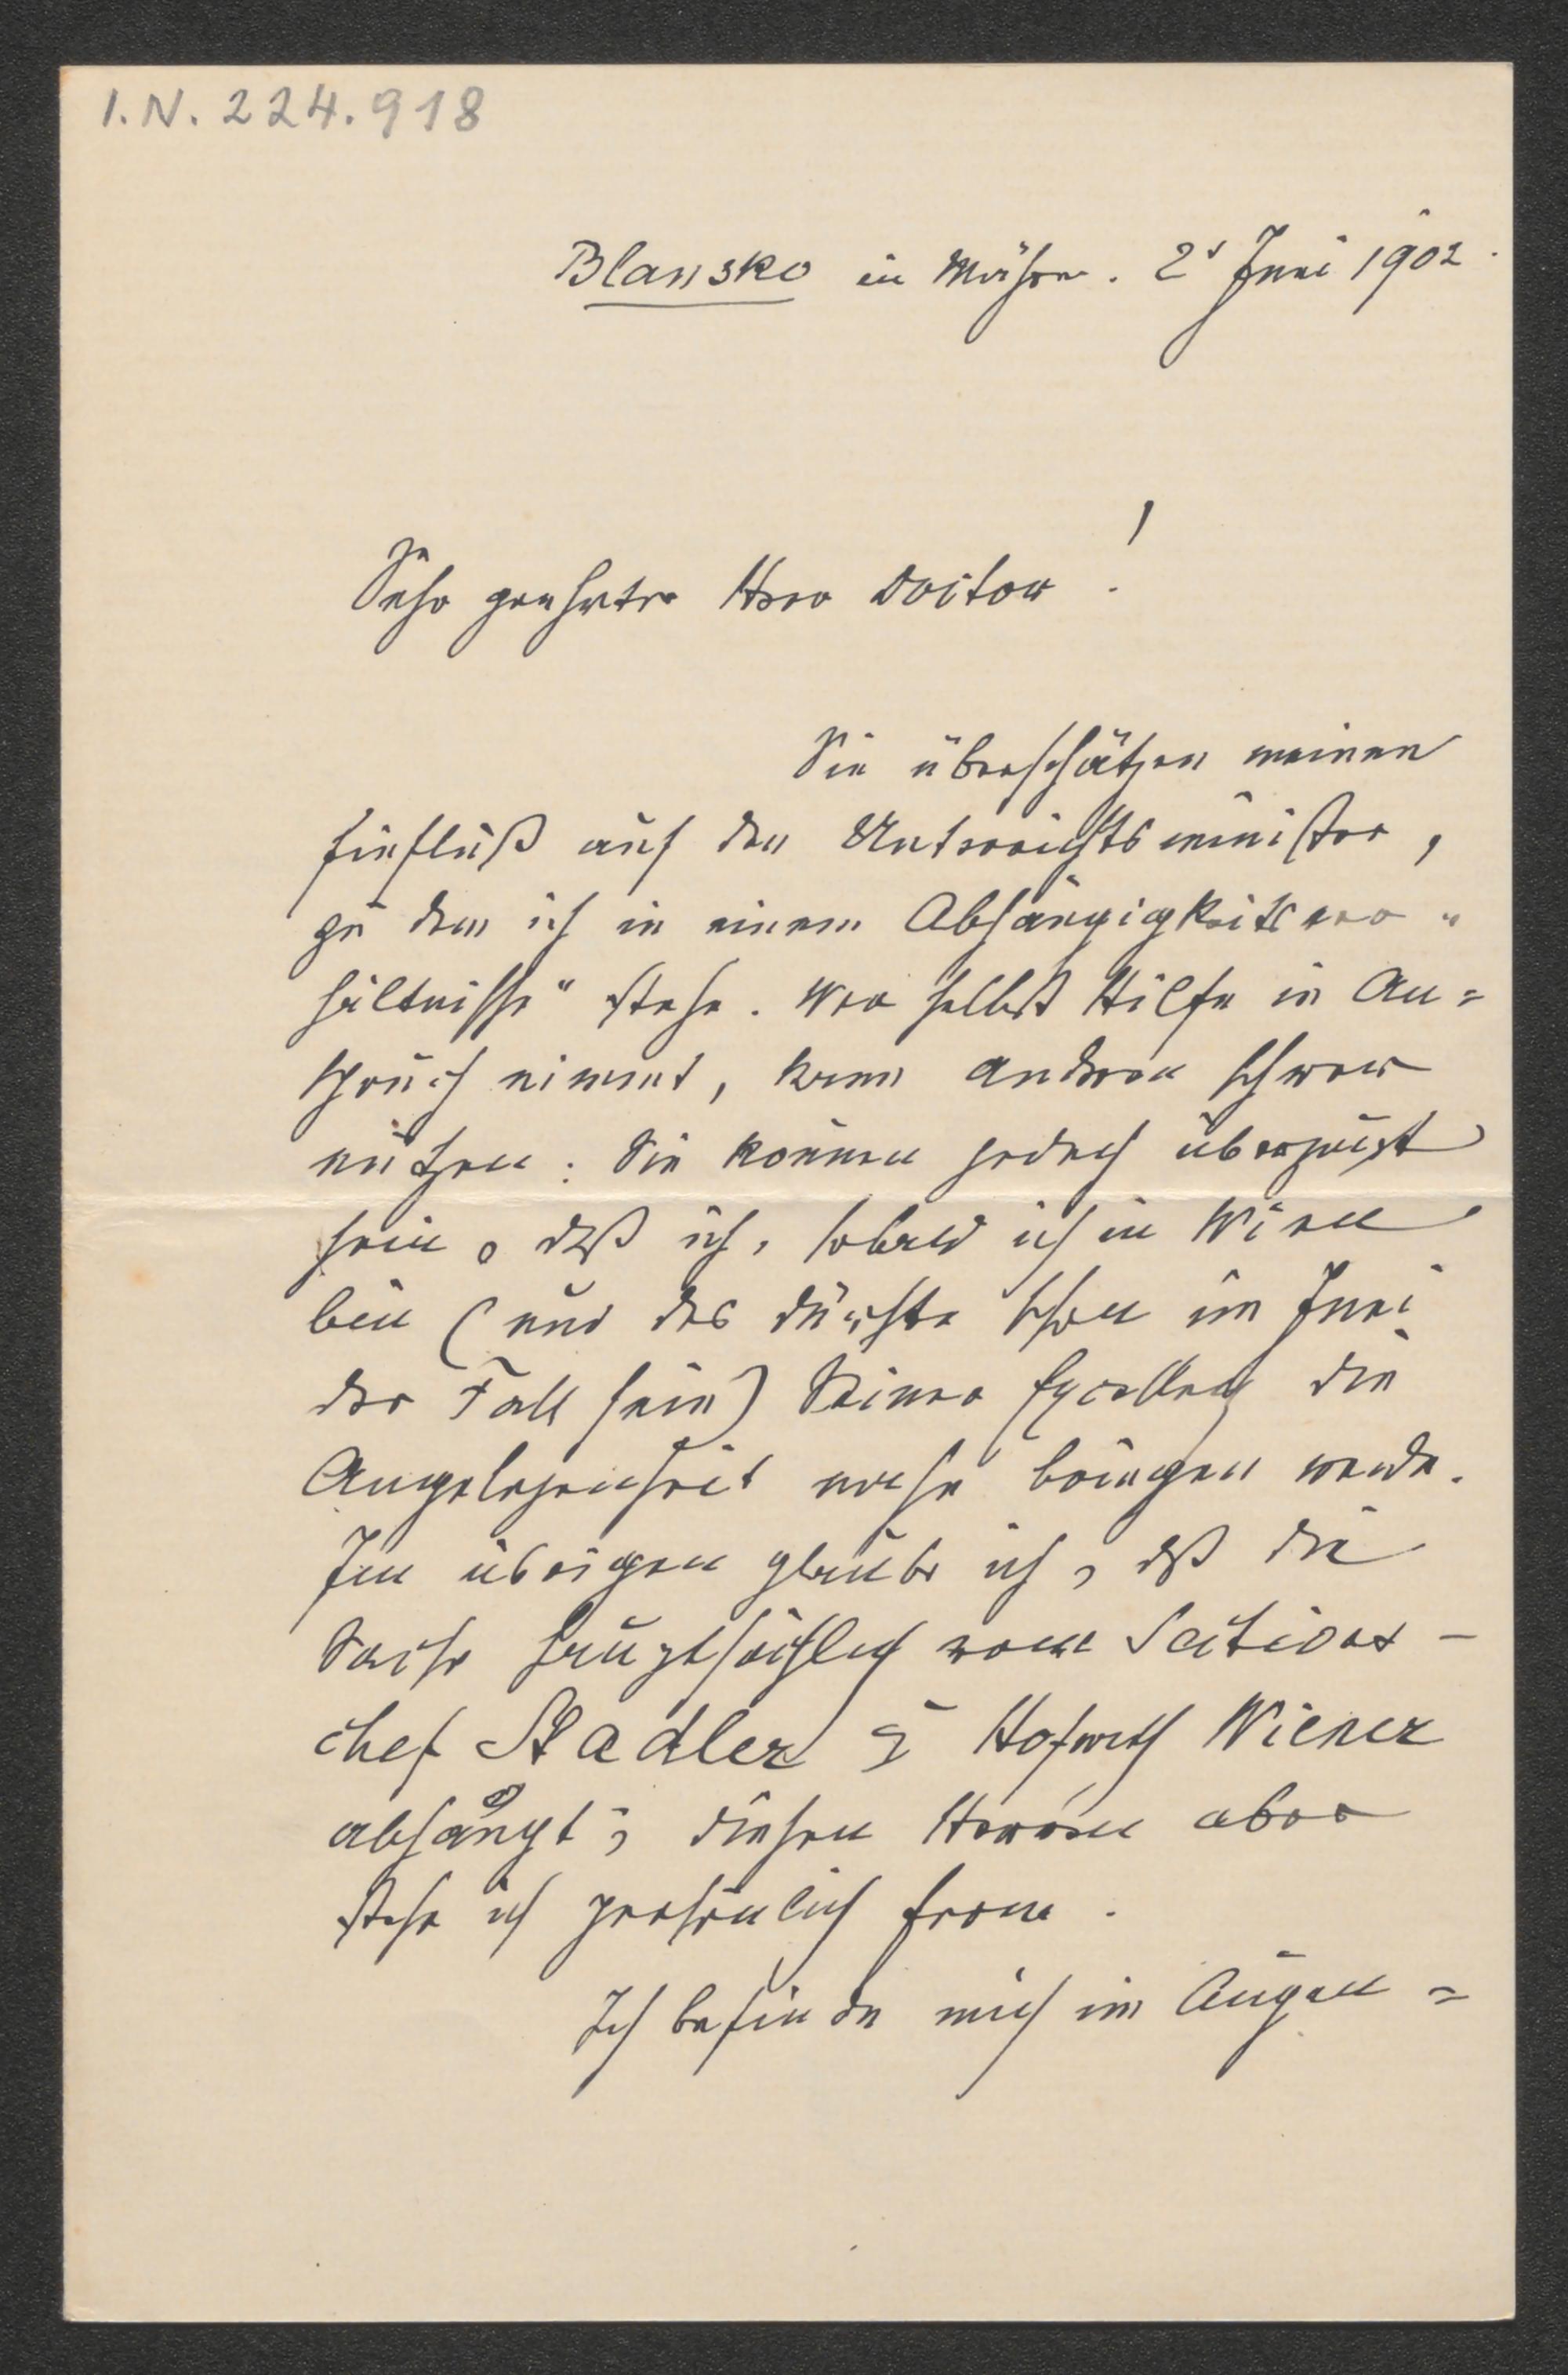 I.N. 224.918
Blansko in Mähren. 2t Juni 1902.
Sehr geehrter Herr Doctor!
Sie überschätzen meinen
Einfluß auf den Unterrichtsminister,
zu dem ich in einem „Abhängigkeitsver-
hältnisse“ stehe. Wer selbst Hilfe in An=
spruch nimmt, kann anderen schwer
nützen. Sie können jedoch überzeugt
sein, daß ich, sobald ich in Wien
bin (und das dürfte schon im Juni
der Fall sein) Seiner Excellenz die
Angelegenheit nahe bringen werde.
Im übrigen glaube ich, daß die
Sache hauptsächlich vom Sections-
chef Stadler & Hofrath Wiener
abhängt; diesen Herren aber
stehe ich persönlich ferne.
Ich befinde mich im Augen=